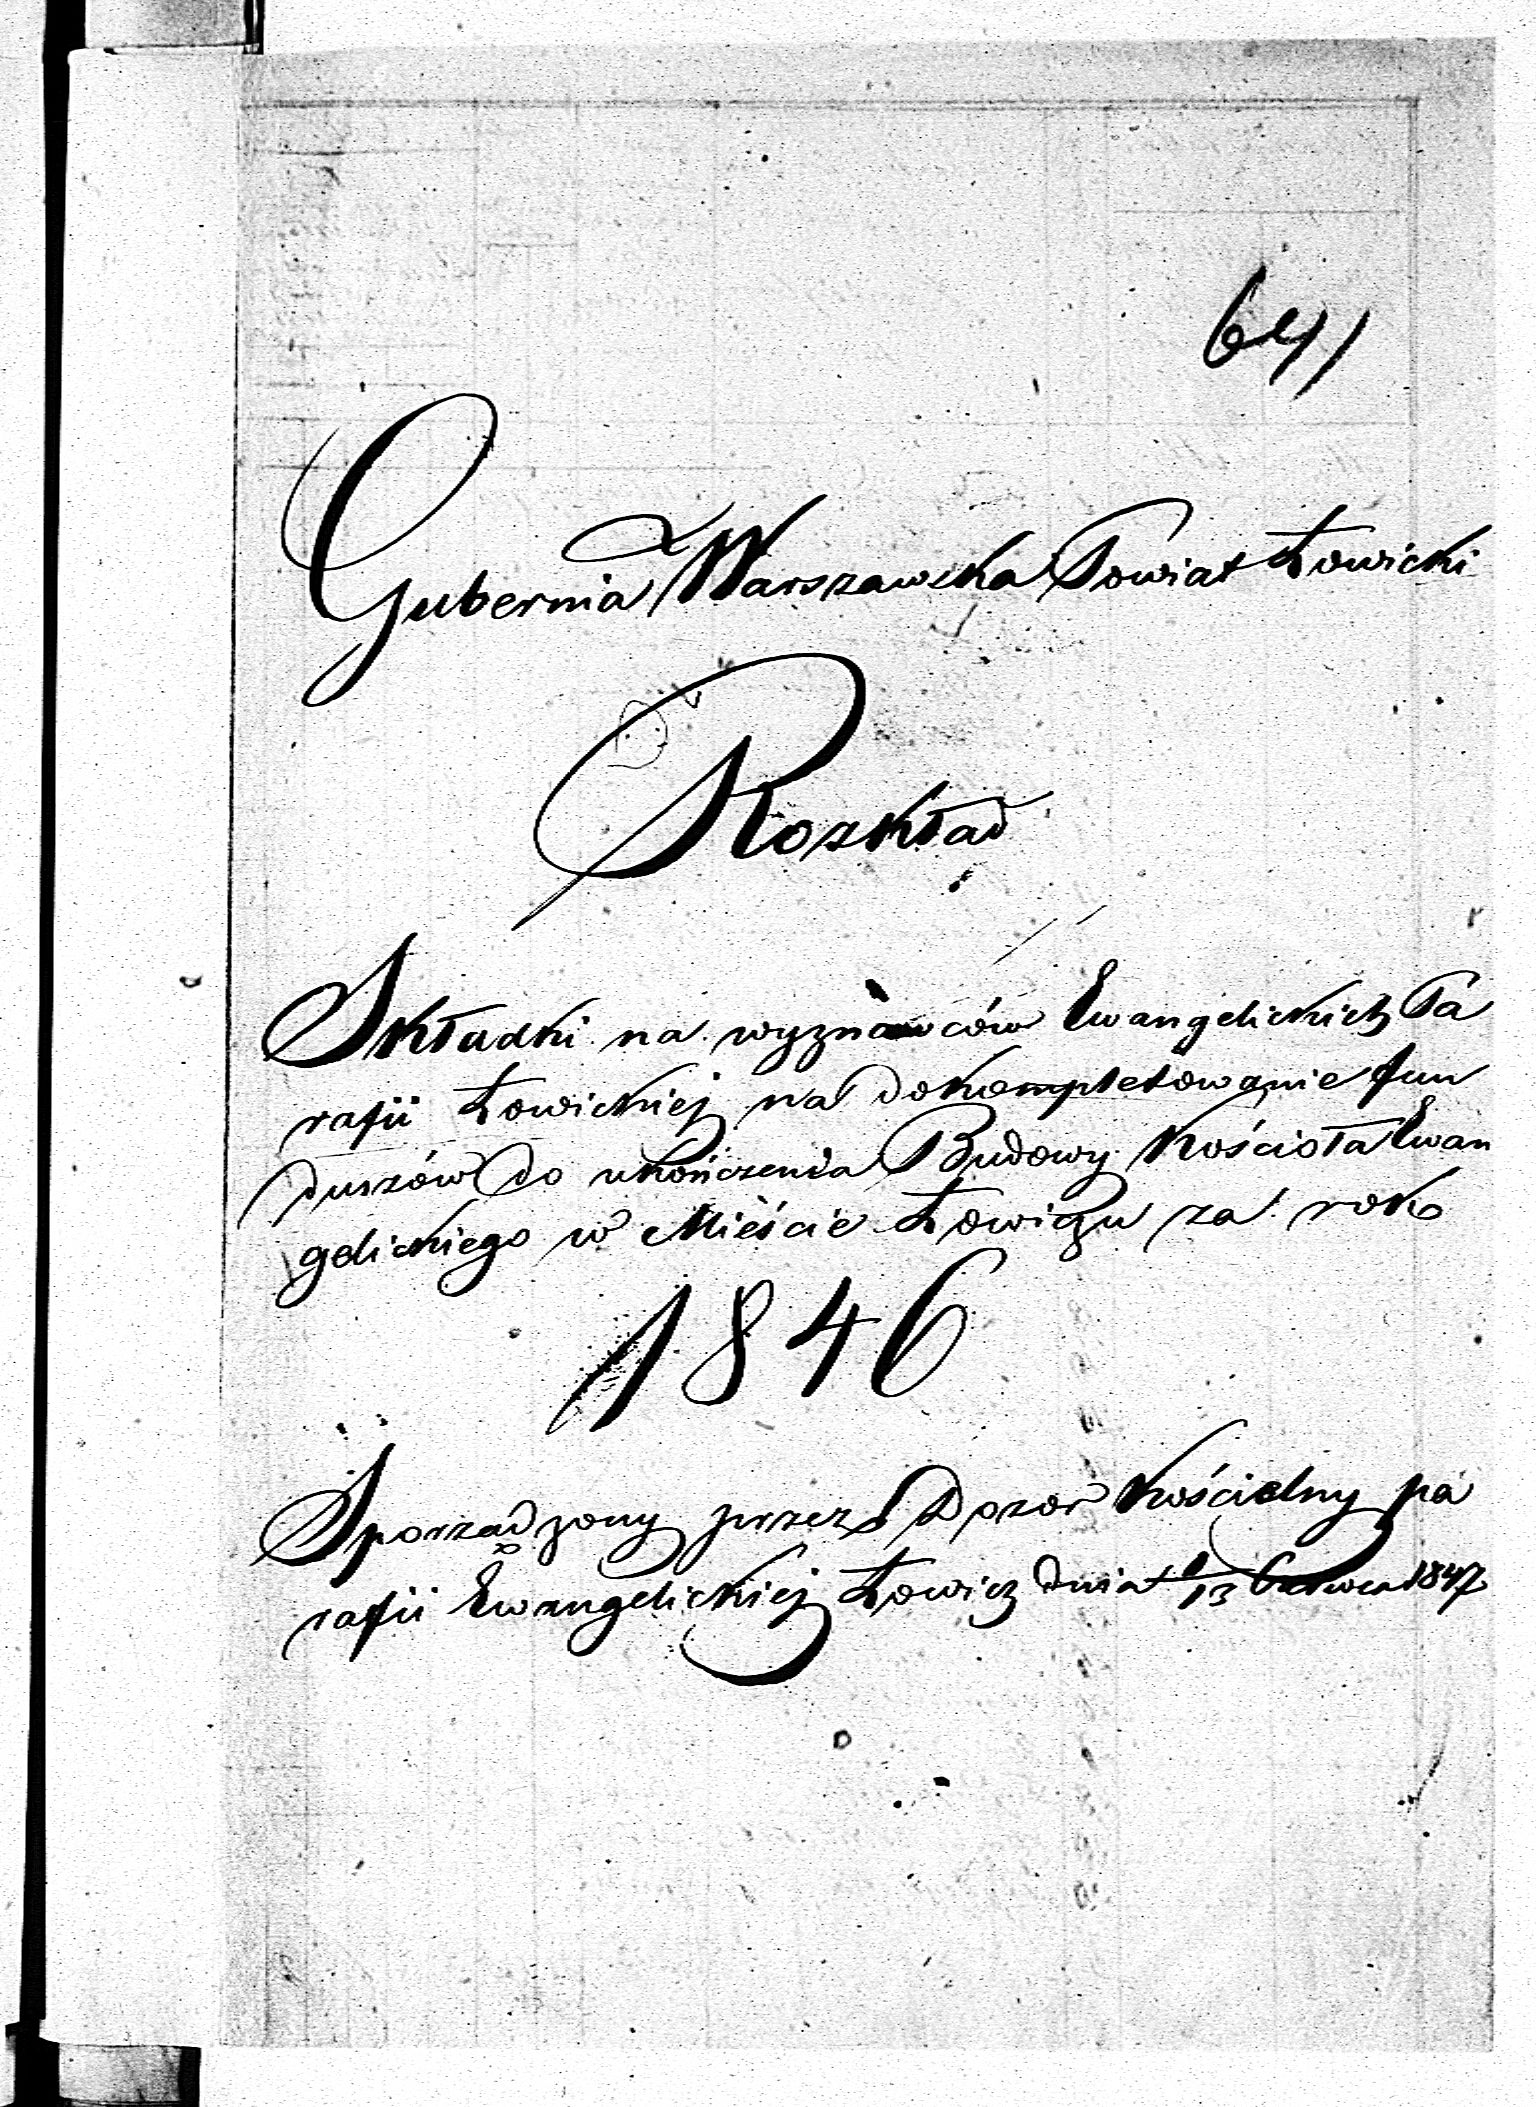 Gubernia Warszawska Powiat Łowicki
Rozkład
Składki na wyznawców Ewangelickich Pa
rafii Łowickiej na dokompletowanie fun
duszów do ukończenia Budowy Kościoła Ewan
gelickiego w Mieście Łowiczu za rok
1846
Sporządzony przez Dozór Kościelny pa
rafii Ewangelickiej Łowicz dnia 1/13 Czerwca 1847